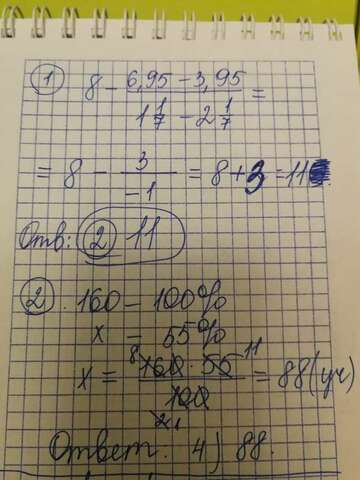 ① 8 - (6,95 - 3,95)/(1 1/7 - 2 1/7) =
= 8 - 3/(-1) = 8 + 3 = 11
Отв: ② 11
② 160 - 100%
x - 55%
x = (160 · 55)/100 = 88 (уч)
8 11
20 1
Ответ: 4) 88.